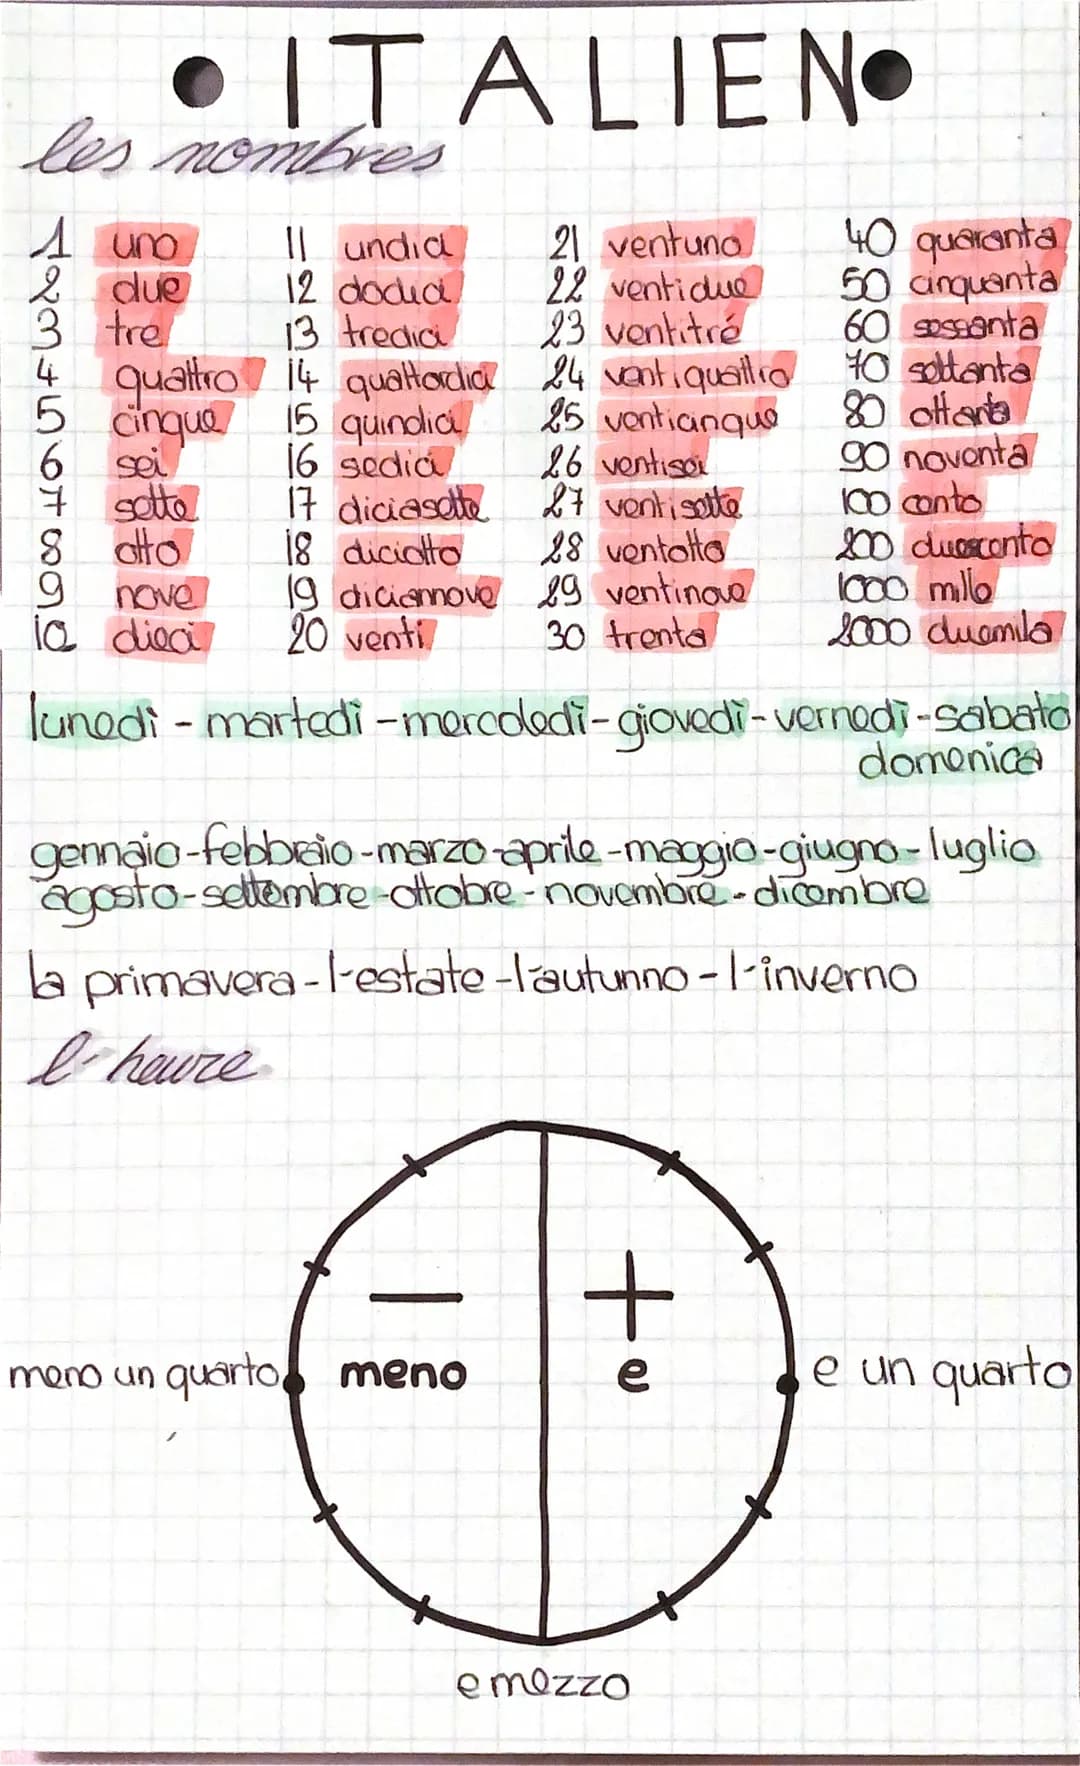 • ITALIEN •
les nombres
1 uno 11 undici 21 ventuno 40 quaranta
2 due 12 dodici 22 ventidue 50 cinquanta
3 tre 13 tredici 23 ventitré 60 sessanta
4 quattro 14 quattordici 24 ventiquattro 70 settanta
5 cinque 15 quindici 25 venticinque 80 ottanta
6 sei 16 sedici 26 ventisei 90 noventa
7 sette 17 diciasette 27 ventisette 100 cento
8 otto 18 diciotto 28 ventotto 200 duecento
9 nove 19 diciannove 29 ventinove 1000 mille
10 dieci 20 venti 30 trenta 2000 duemila
lunedì - martedì - mercoledì - giovedì - vernedì - sabato
domenica
gennaio - febbraio - marzo - aprile - maggio - giugno - luglio
agosto - settembre - ottobre - novembre - dicembre
la primavera - l'estate - l'autunno - l'inverno
l'heure
— +
meno un quarto meno e e un quarto
e mezzo